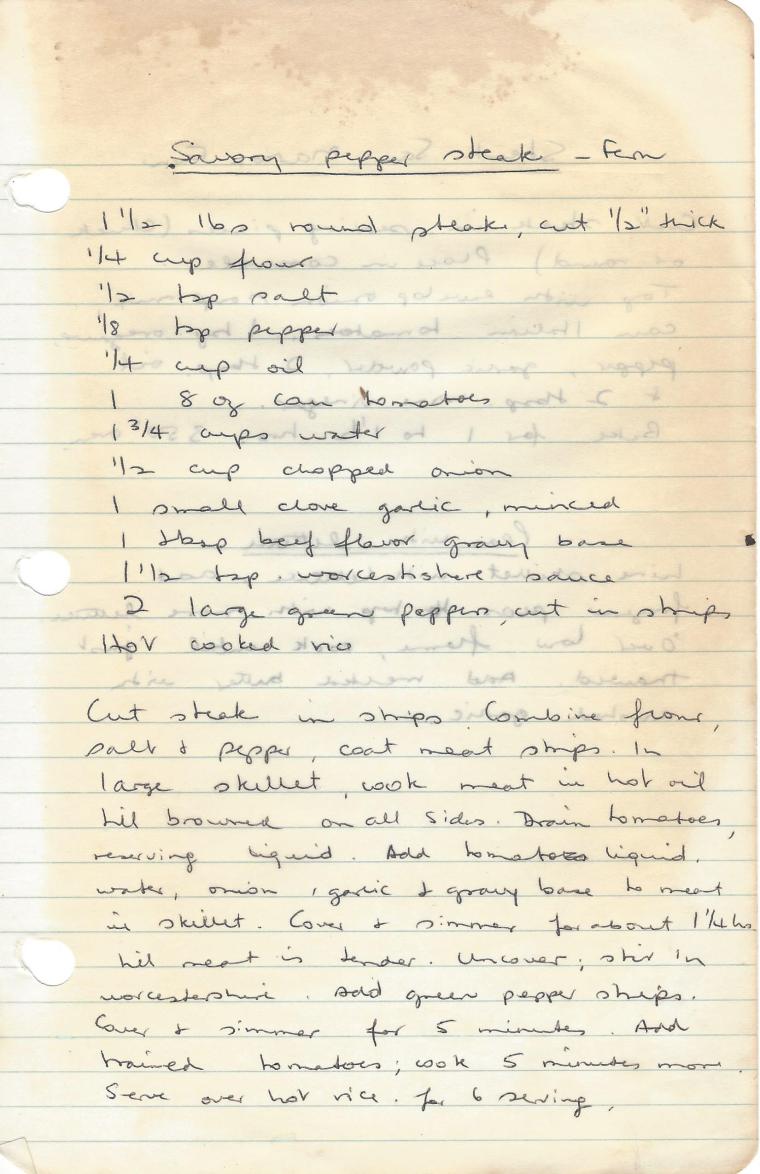 Savory pepper steak - Fern
1 1/2 lbs round steak, cut 1/2" thick
1/4 cup flour
1/2 tsp salt
1/8 tsp pepper
1/4 cup oil
1 8 oz can tomatoes
1 3/4 cups water
1/2 cup chopped onion
1 small clove garlic, minced
1 tbsp beef flavor gravy base
1 1/2 tsp. worcestishere sauce
2 large green peppers, cut in strips
Hot cooked rice
Cut steak in strips. Combine flour,
salt & pepper, coat meat strips. In
large skillet, cook meat in hot oil
til browned on all sides. Drain tomatoes,
reserving liquid. Add tomatoes liquid,
water, onion, garlic & gravy base to meat
in skillet. Cover & simmer for about 1 1/4 hs
til meat is tender. Uncover; stir in
worcestershire. Add green pepper strips.
Cover & simmer for 5 minutes. Add
trained tomatoes; cook 5 minutes more.
Serve over hot rice. for 6 serving.